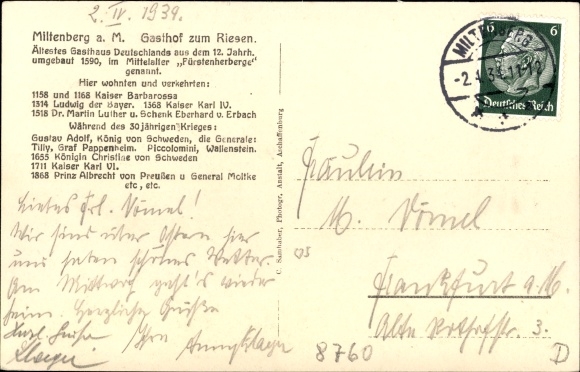 2. IV. 1934.
Miltenberg a. M. Gasthof zum Riesen.
Ältestes Gasthaus Deutschlands aus dem 12. Jahrh.
umgebaut 1590, im Mittelalter „Fürstenherberge"
genannt.
Hier wohnten und verkehrten:
1158 und 1168 Kaiser Barbarossa
1314 Ludwig der Bayer. 1368 Kaiser Karl IV.
1518 Dr. Martin Luther u. Schenk Eberhard v. Erbach
Während des 30 jährigen Krieges:
Gustav Adolf, König von Schweden, die Generale:
Tilly, Graf Pappenheim. Piccolomini, Wallenstein.
1655 Königin Christine von Schweden
1711 Kaiser Karl VI.
1868 Prinz Albrecht von Preußen u General Moltke
etc., etc.
Liebes Frl. Vömel!
Wir sind über Ostern hier
und haben schönes Wetter.
Am Mittwoch geht's wieder
heim. Herzliche Grüße
Ihre
C. Samhaber, Photogr. Anstalt, Aschaffenburg
MILTENBERG
6 6
Deutsches Reich
Fräulein
M. Vömel
Frankfurt a. M.
Alte 3.
8760
D